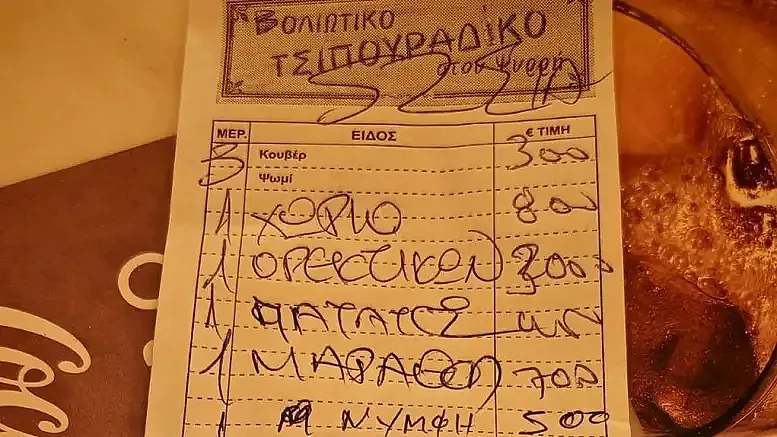 ΒΟΛΙΩΤΙΚΟ
ΤΣΙΠΟΥΡΑΔΙΚΟ
στου Ψυρρή
ΜΕΡ. ΕΙΔΟΣ € ΤΙΜΗ
3 Κουβέρ 300
Ψωμί
1 ΧΩΡΙΟ 800
1 ΟΡΕΚΤΙΚΩΝ
1 ΠΑΤΑΤΕΣ
1 ΜΑΡΑΘΟ 700
1 ΝΥΜΦΗ 500